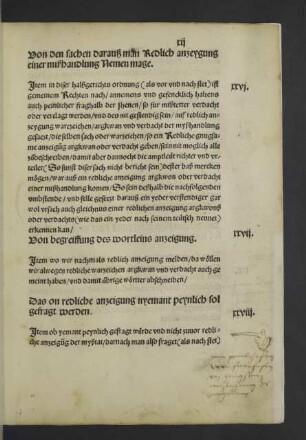 xij
Von den sachen darauß man Redlich anzeygung
einer mißhandlung Nemen mage.
Item in diser halßgerichts ordnung (als vor vnd nach stet) ist
xxvj.
gemeinem Rechten nach / annemens vnd gefencklich haltens
auch peinlicher fraghalb der jhenen / so für mißteter verdacht
oder verclagt werden / vnd des nit gestendig sein / auf redlich an-
zeygung warzeichen / argkwan vnd verdacht der myßhandlung
gesatzt / die selben sach oder warzeichen / so ein Redliche gnugsa-
me anzeigung argkwan oder verdacht geben / sein nit moglich alle
zubeschreiben / damit aber dannocht die amptleut richter vnd vr-
teiler (So sunst diser sach nicht bericht sein) dester baß mercken
mögen / war auß ein redliche anzeigung argkwon oder verdacht
einer mißhandlung komen / So sein deßhalb die nachfolgenden
vmbstende / vnd
oder verdachts (wie das ein yeder nach seinem teütsch nennet)
erkennen kan /
Von begreiffung des wortleins anzeigung.
xxvij.
Item wo wir nachmals redlich anzeigung melden / da wöllen
wir alwegen redliche warzeichen argkwan vnd verdacht auch ge
meint haben / vnd damit übrige wörter abschneiden /
Das on redliche anzeigung nyemant peynlich sol
gefragt werden.
xxviij.
Item ob yemant peynlich gefragt würde vnd nicht zuuor redli-
che anzeigüg der myßtat / darnach man also fraget (als nach stet)